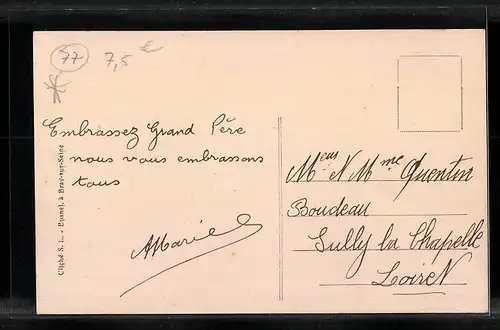 77
7,5 €
Embrassez Grand Père
nous vous embrassons
tous
Marie
Meus N Mme Quentin
Boudeau
Sully la Chapelle
Loiret
Cliché S. L. - Brunel, à Bray-sur-Seine